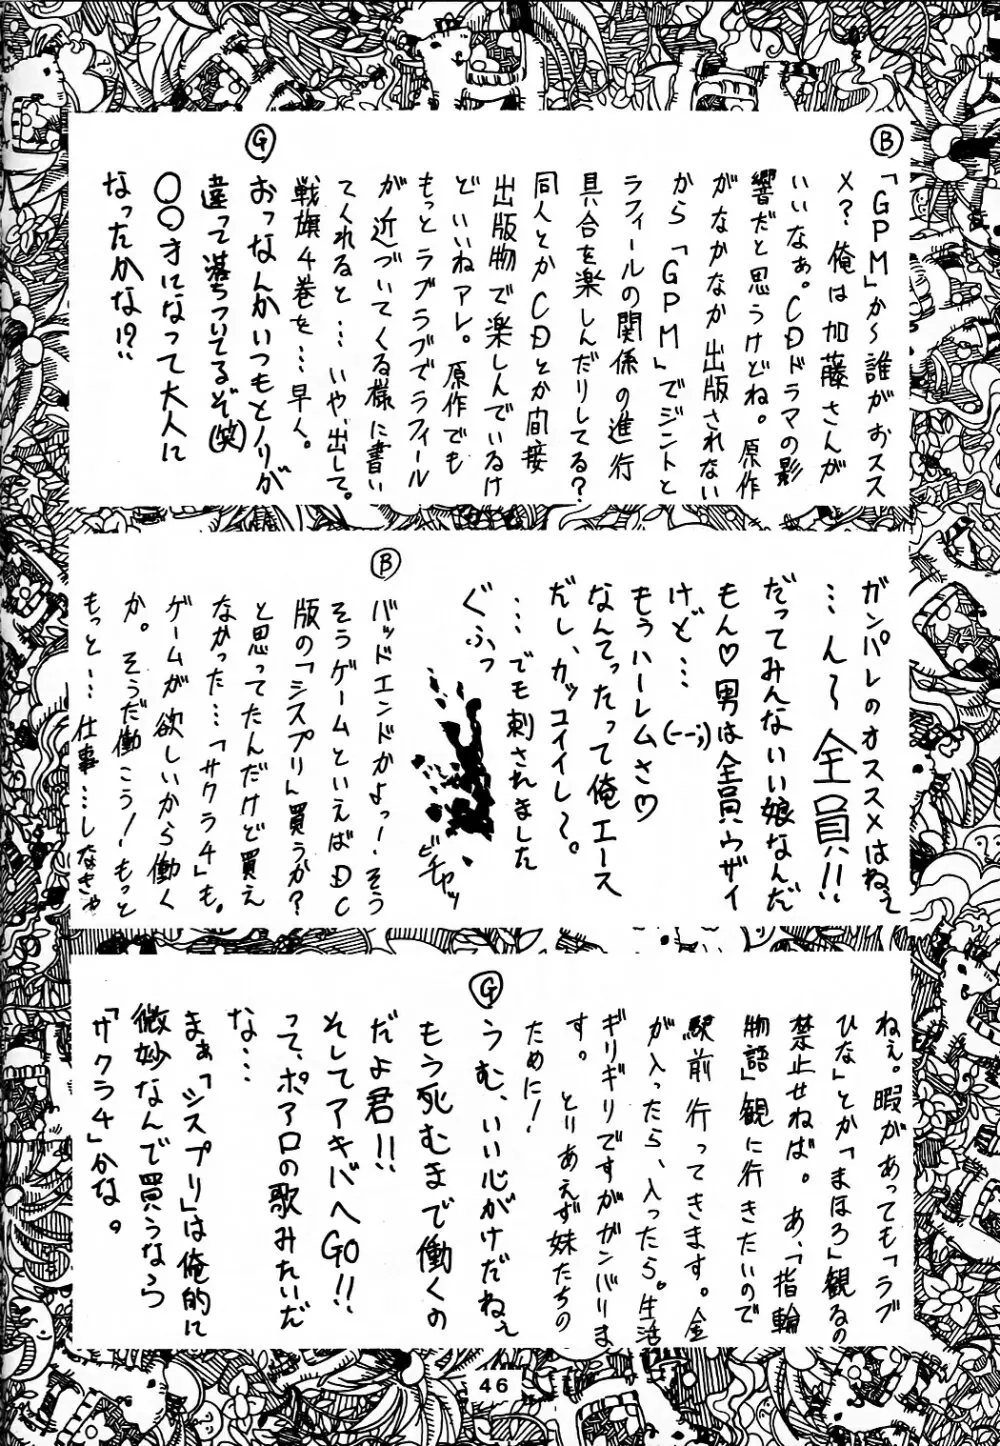 Ⓑ
「GPM」か〜誰がおスス
メ？俺は加藤さんが
いいなぁ。CDドラマの影
響だと思うけどね。原作
がなかなか出版されない
から「GPM」でジントと
ラフィールの関係の進行
具合を楽しんだりしてる？
同人とかCDとか間接
出版物で楽しんでいるけ
どいいねアレ。原作でも
もっとラブラブでラフィール
が近づいてくる様に書い
てくれると…いや、出して。
戦旗4巻を…早く。
Ⓖ
おっなんかいつもとノリが
違って落ちついてるぞ(笑)
〇〇才になって大人に
なったかな!?
ガンパレのオススメはねぇ
…ん〜〜全員!!
だってみんないい娘なんだ
もん♡男は全員ウザイ
けど…(ーー;)
もうハーレムさ♡
なんてったって俺エース
だし、カッコイイし〜。
…でも刺されました
ぐふっ
ビチャッ
Ⓑ
バッドエンドかよっ！そう
そうゲームといえばDC
版の「シスプリ」買うか？
と思ってたんだけど買え
なかった…「サクラ4」も。
ゲームが欲しいから働く
か。そうだ働こう！もっと
もっと…仕事…しなきゃ
ねぇ。暇があっても「ラブ
ひな」とか「まほろ」観るの
禁止せねば。あ、「指輪
物語」観に行きたいので
駅前行ってきます。金
が入ったら、入ったら。生活
ギリギリですがガンバリま
す。とりあえず妹たちの
ために！
Ⓖ
うむ、いい心がけだねぇ
もう死むまで働くの
だよ君!!
そしてアキバへGO!!
って、ポアロの歌みたいだ
な…
まぁ「シスプリ」は俺的に
微妙なんで買うなら
「サクラ4」かな。
46